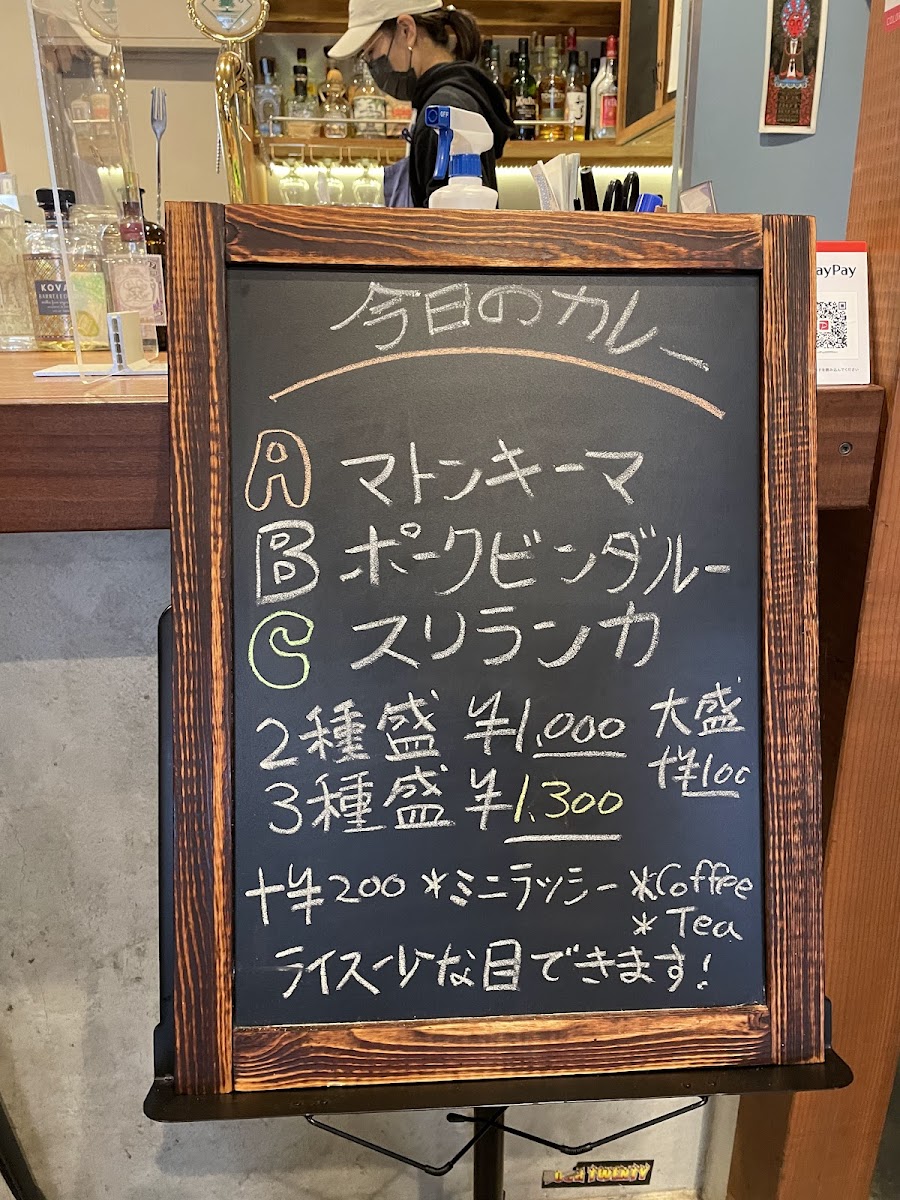 今日のカレー
A マトンキーマ
B ポークビンダルー
C スリランカ
2種盛 ¥1,000 大盛
+¥100
3種盛 ¥1,300
+¥200 *ミニラッシー *Coffee
*Tea
ライス少な目できます!
ayPay
KOVAL
OFF
TWENTY